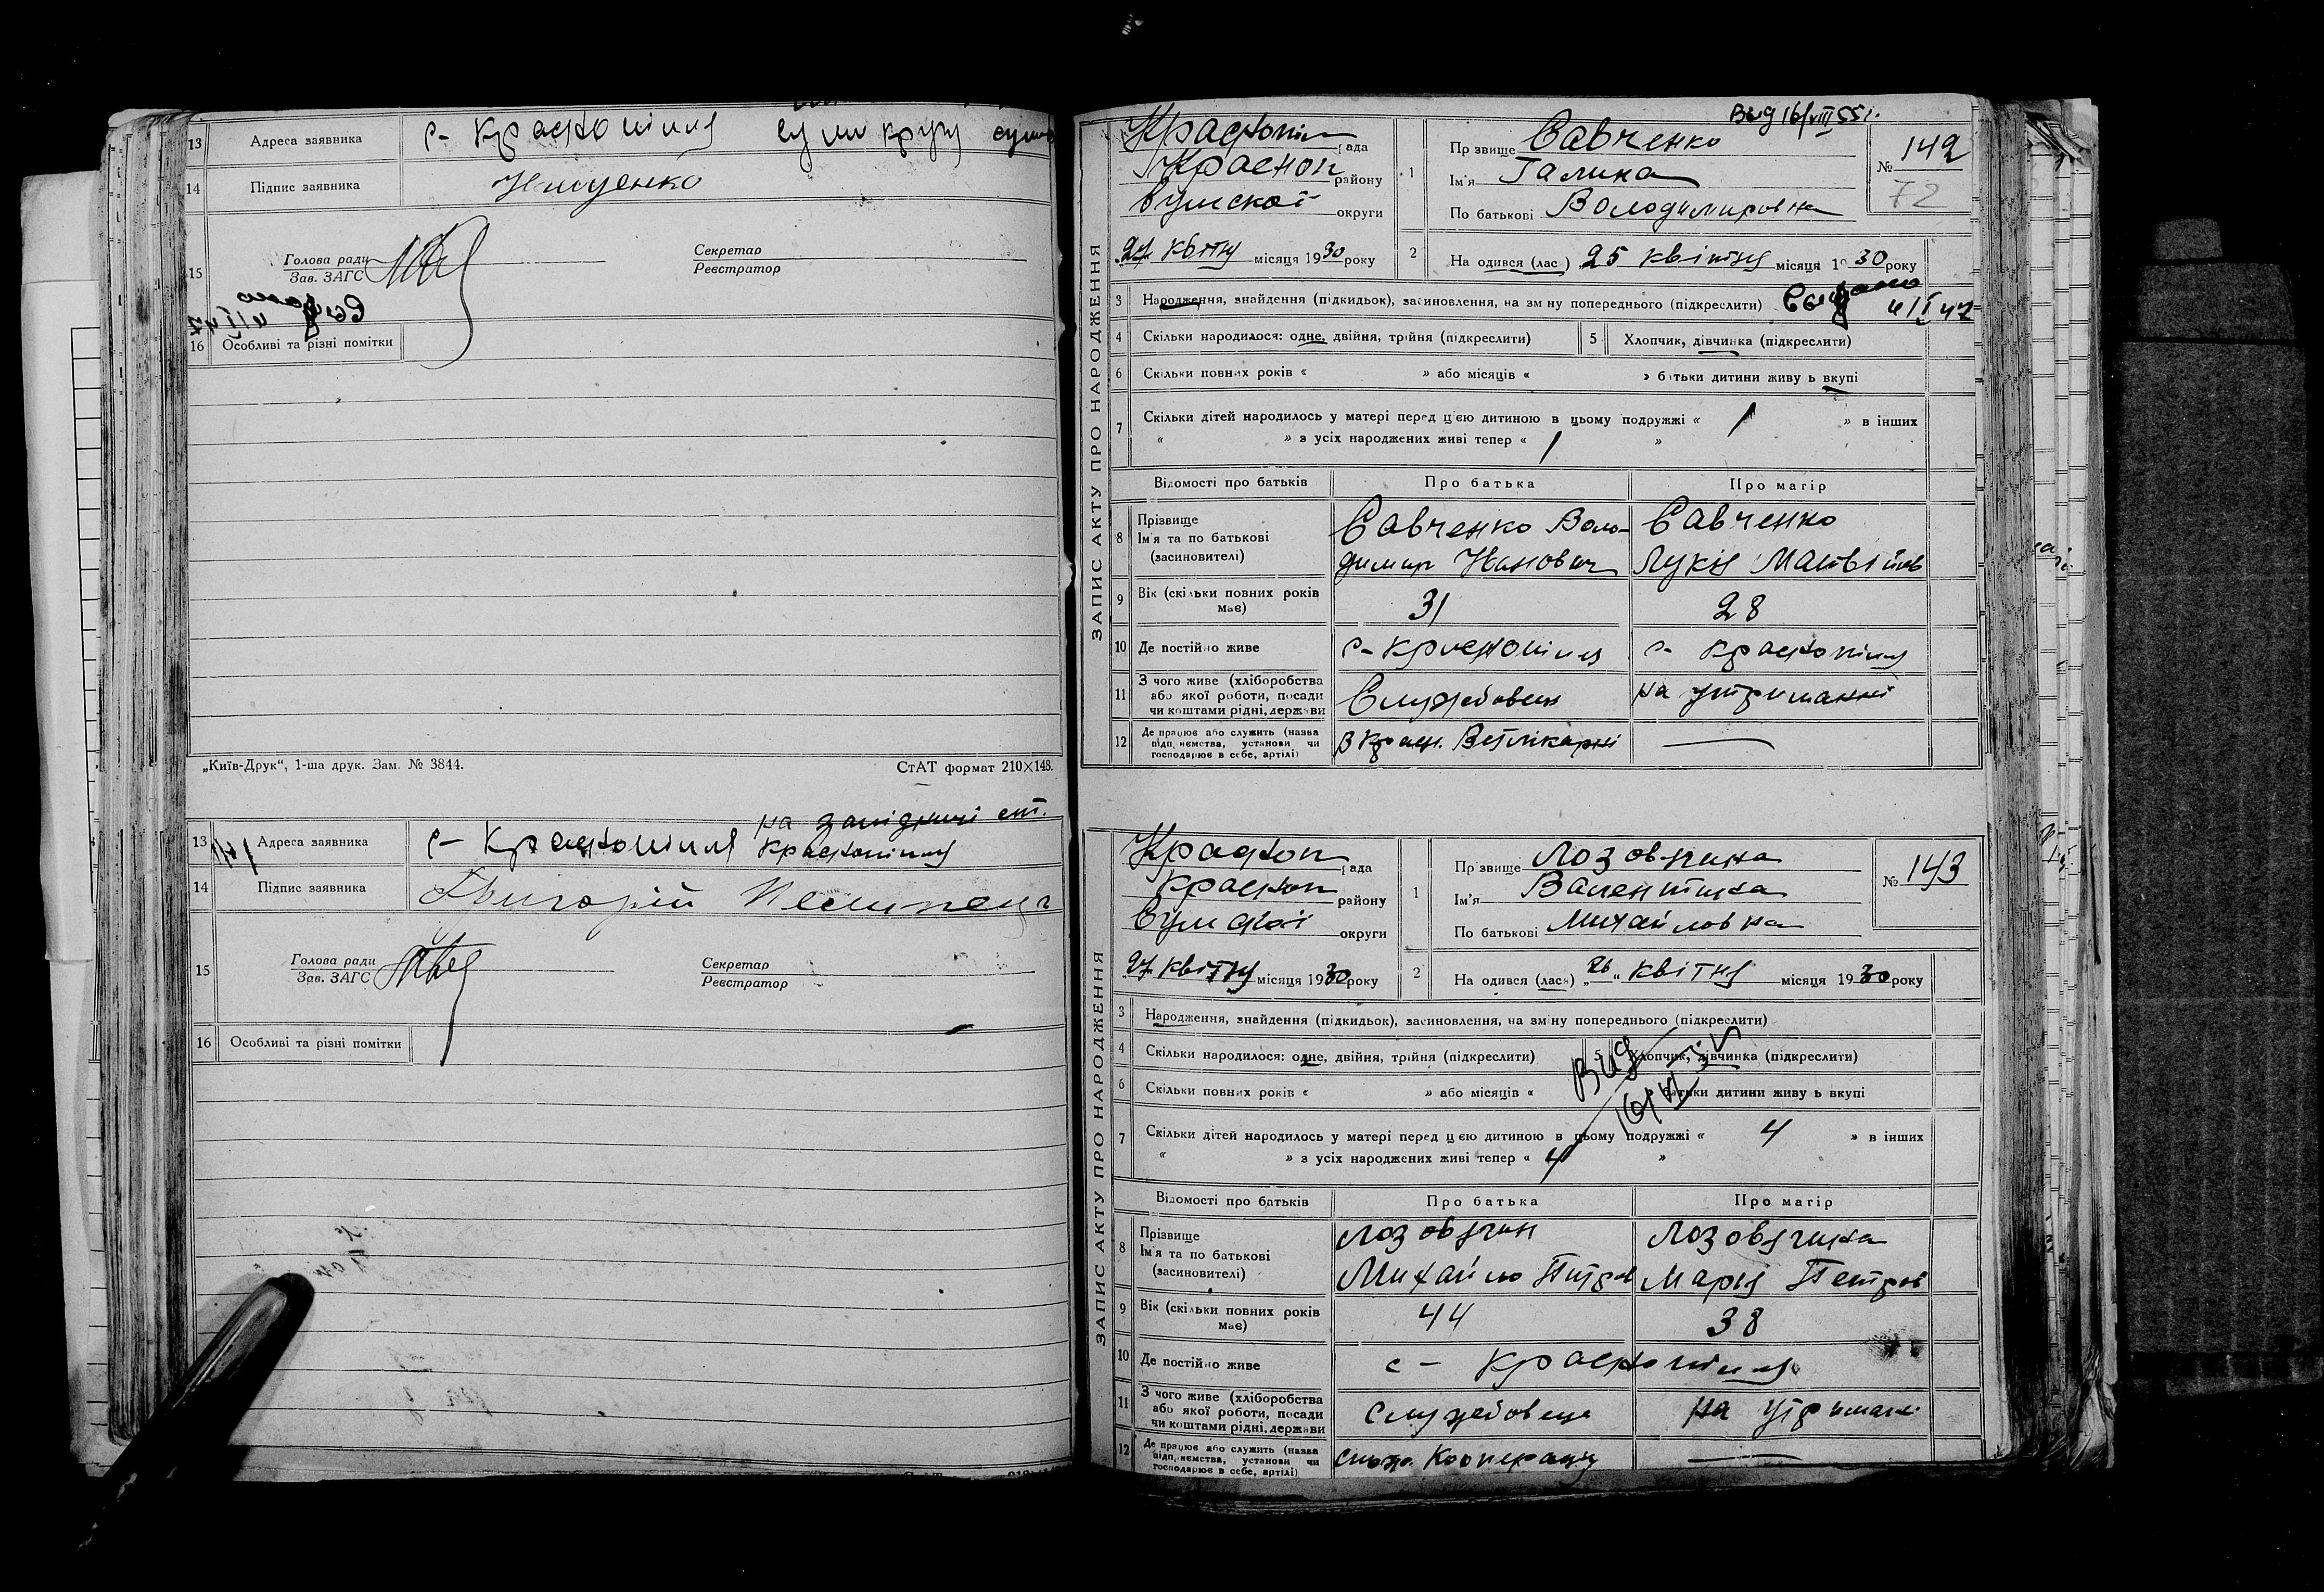 13 Адреса заявника с- Краснопілля
14 Підпис заявника
15 Голова ради Секретар
Зав. ЗАГС Реєстратор
16 Особливі та різні помітки
„Київ-Друк“, 1-ша друк. Зам. № 3844. СтАТ формат 210×148.
13 Адреса заявника с- Краснопілля на західній ст.
Краснопілля
14 Підпис заявника Григорій
15 Голова ради Секретар
Зав. ЗАГС Реєстратор
16 Особливі та різні помітки
ЗАПИС АКТУ ПРО НАРОДЖЕННЯ
Вид 16/VIII 55 г.
Краснопіл рада
Красноп району
Сумської округи
27 квітня місяця 1930 року
1 Прзвище Савченко
Ім'я Галина
По батькові Володимировна
№ 142
72
2 На одився (лас) 25 квітня місяця 1930 року
3 Народження, знайдення (підкидьок), засиновлення, на зміну попереднього (підкреслити)
4 Скільки народилося: одне, двійня, трійня (підкреслити) 5 Хлопчик, дівчинка (підкреслити)
6 Скільки повних років « » або місяців « » батьки дитини живуь вкупі
7 Скільки дітей народилось у матері перед цією дитиною в цьому подружжі « 1 » в інших
« » з усіх народжених живі тепер « 1 »
Відомості про батьків Про батька Про матір
8 Прізвище Ім'я та по батькові (засиновителі) Савченко Воло- Савченко
димир Иванович Лукія Матвіїв
9 Вік (скільки повних років має) 31 28
10 Де постійно живе с- Краснопілля с- Краснопілля
11 З чого живе (хліборобства
або якої роботи, посади
чи коштами рідні, держави Службовець на утриманні
12 Де працює або служить (назва
підпиємства, установи чи
господарює в себе, артілі) В Красн. Ветлікарні —
ЗАПИС АКТУ ПРО НАРОДЖЕННЯ
Красноп рада
Красноп району
Сумської округи
27 квітня місяця 1930 року
1 Прзвище
Ім'я Валентина
По батькові Михайловна
№ 143
2 На одився (лася) „26“ квітня місяця 1930 року
3 Народження, знайдення (підкидьок), засиновлення, на зміну попереднього (підкреслити)
4 Скільки народилося: одне, двійня, трійня (підкреслити) 5 Хлопчик, дівчинка (підкреслити)
Вид
6 Скільки повних років « » або місяців « » батьки дитини живуь вкупі
7 Скільки дітей народилось у матері перед цією дитиною в цьому подружжі « 4 » в інших
« » з усіх народжених живі тепер « 4 »
Відомості про батьків Про батька Про матір
8 Прізвище Ім'я та по батькові (засиновителі)
Михайло Петров Марія Петров
9 Вік (скільки повних років має) 44 38
10 Де постійно живе с- Краснопілля
11 З чого живе (хліборобства
або якої роботи, посади
чи коштами рідні, держави Службовець на утриман
12 Де працює або служить (назва
підпиємства, установи чи
господарює в себе, артілі) Кооперація —